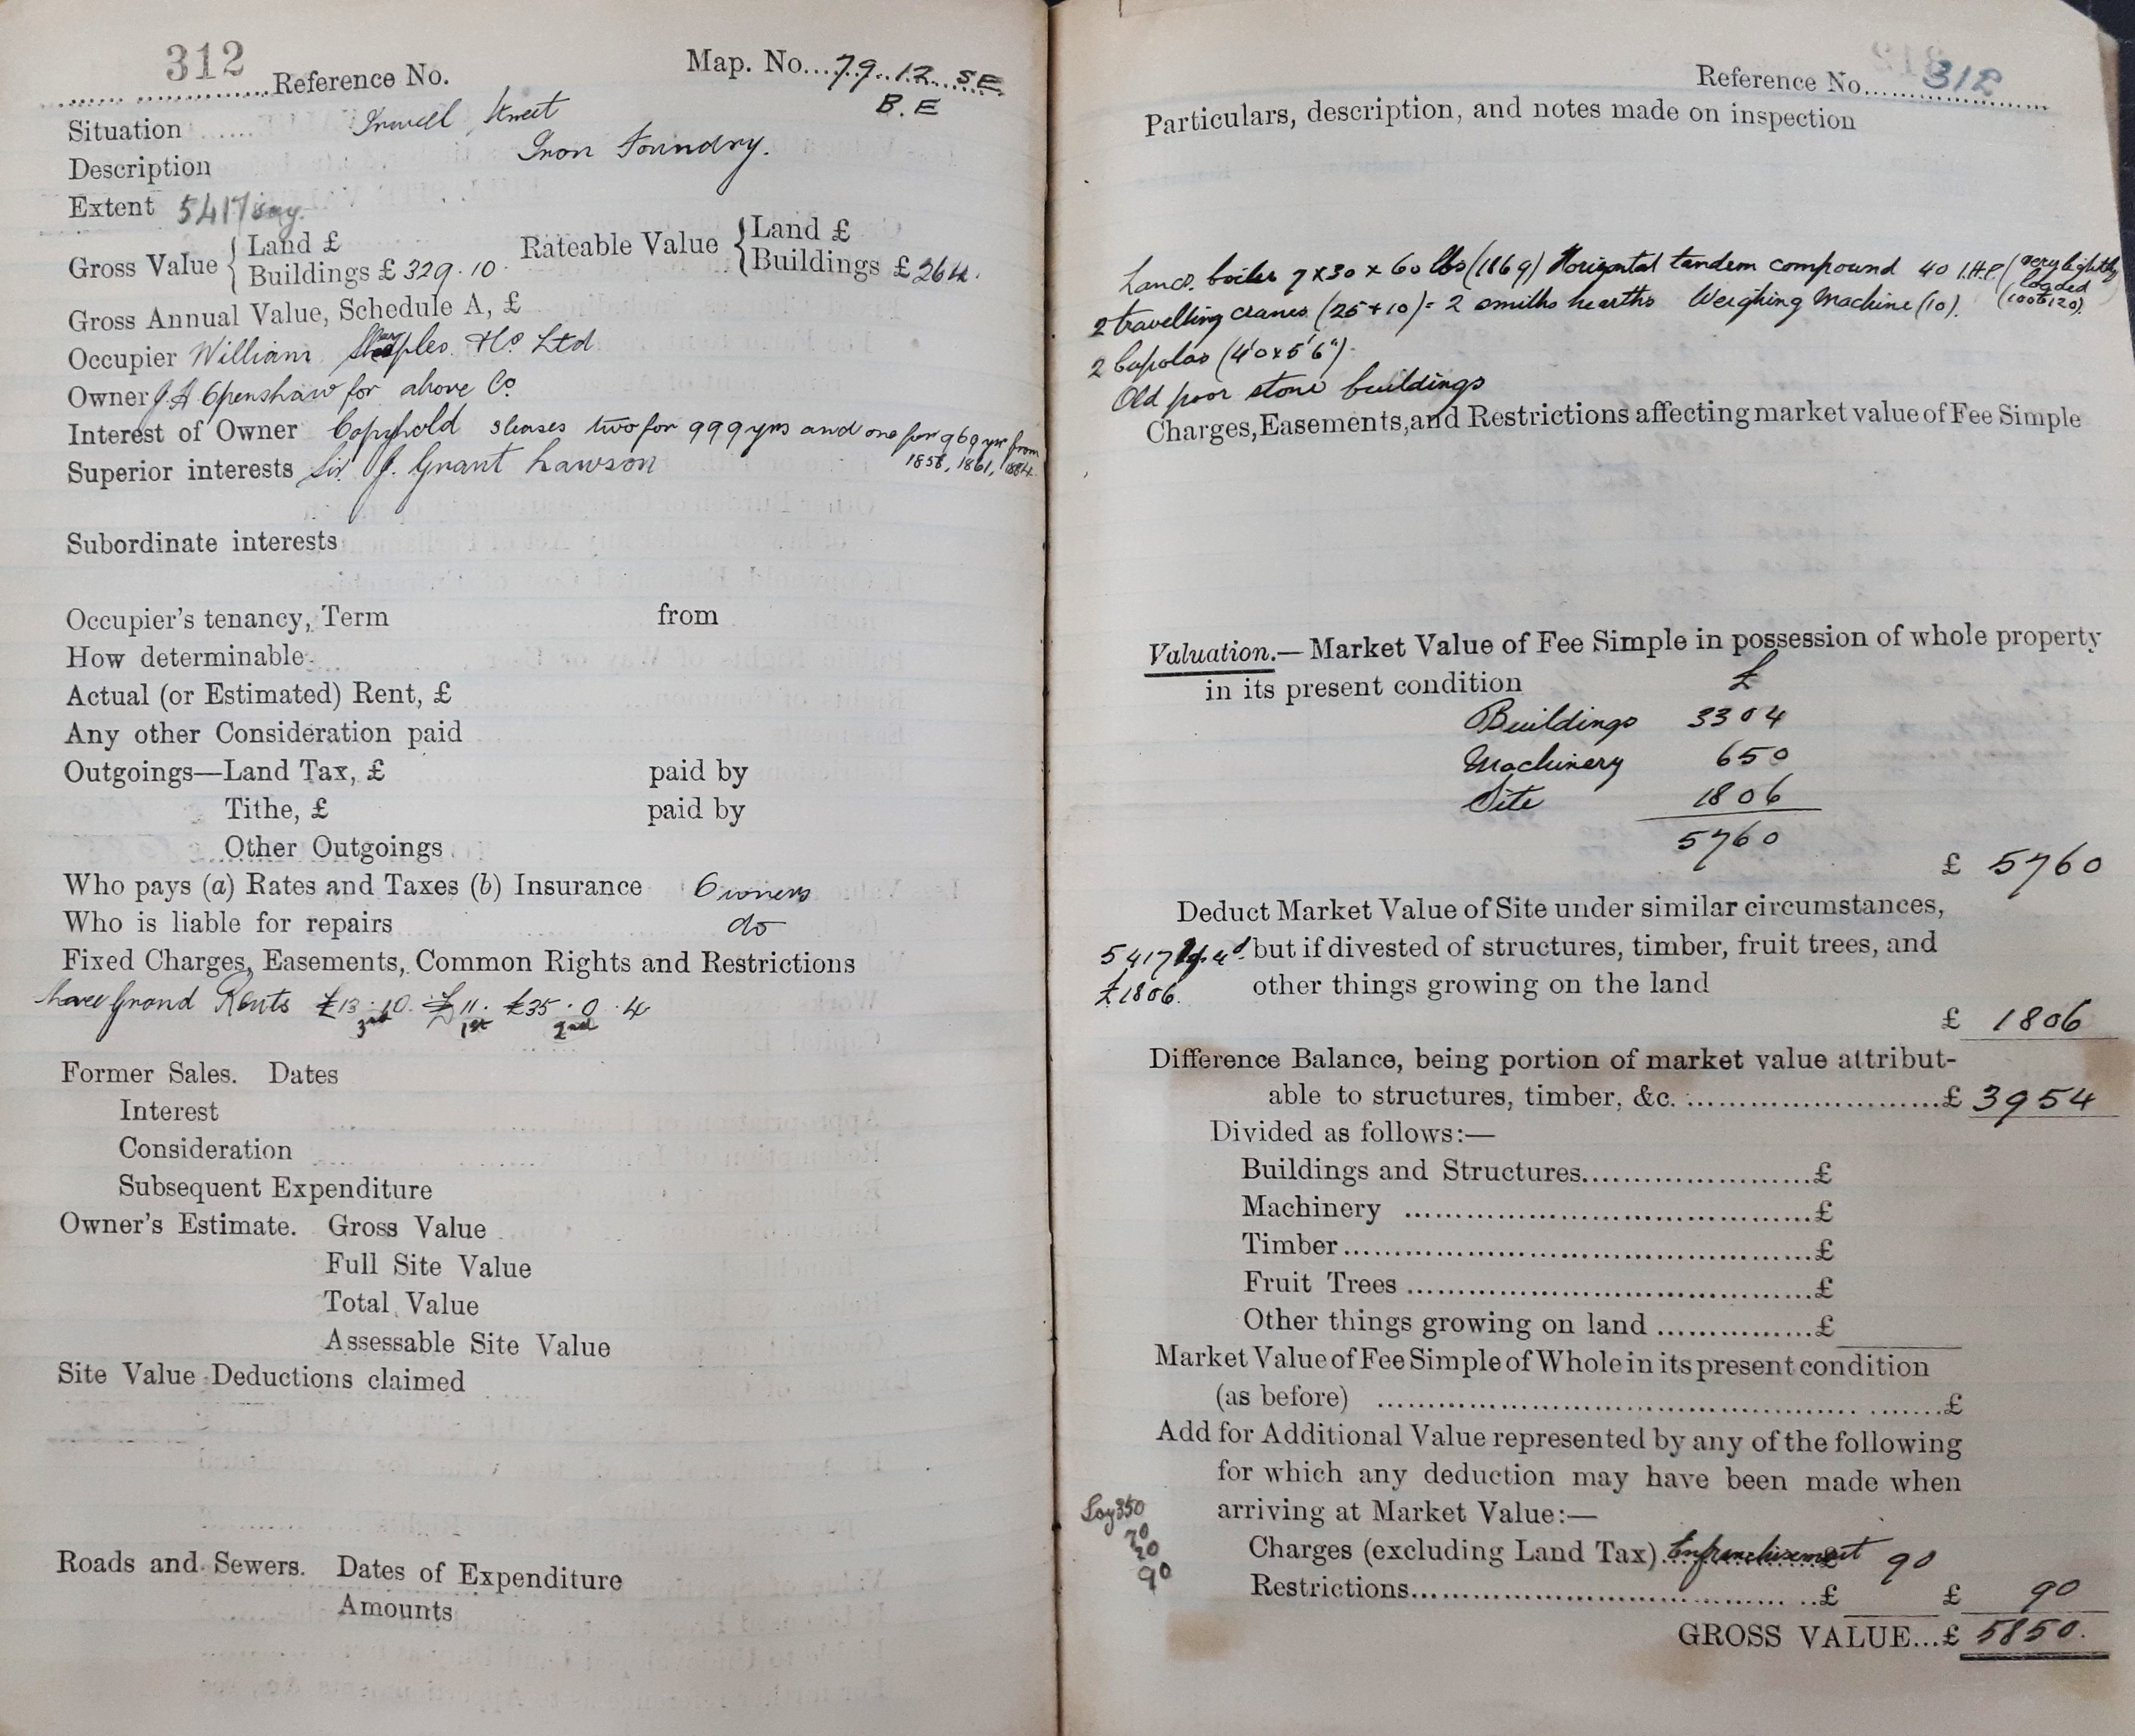 312 Reference No. Map. No...79..12..SE
B.E
Situation Irwell Street
Description Iron Foundry.
Extent 5417
Gross Value { Land £ Rateable Value { Land £
Buildings £ 329.10. Buildings £ 264.
Gross Annual Value, Schedule A, £
Occupier William & Co Ltd
Owner J A Openshaw for above Co
Interest of Owner Copyhold 3 leases two for 999 yrs and one for 969 yrs from
1858, 1861, 1884.
Superior interests Sir J. Grant Lawson
Subordinate interests
Occupier's tenancy, Term from
How determinable
Actual (or Estimated) Rent, £
Any other Consideration paid
Outgoings—Land Tax, £ paid by
Tithe, £ paid by
Other Outgoings
Who pays (a) Rates and Taxes (b) Insurance Owners
Who is liable for repairs do
Fixed Charges, Easements, Common Rights and Restrictions
Rents £13.10. £11. £35.0.4
3rd 1st 2nd
Former Sales. Dates
Interest
Consideration
Subsequent Expenditure
Owner's Estimate. Gross Value
Full Site Value
Total Value
Assessable Site Value
Site Value Deductions claimed
Roads and Sewers. Dates of Expenditure
Amounts
Reference No. 312
Particulars, description, and notes made on inspection
Lancs. boiler 7 x 30 x 60 lbs (1869) Horizontal tandem compound 40 I.H.P. (very lightly
loaded
2 travelling cranes (25 + 10) = 2 smiths hearths Weighing Machine (10). (100 to 120).
2 Cupolas (4'0 x 5'6").
Old poor stone buildings
Charges, Easements, and Restrictions affecting market value of Fee Simple
Valuation.—Market Value of Fee Simple in possession of whole property
in its present condition £
Buildings 3304
Machinery 650
Site 1806
5760
£ 5760
Deduct Market Value of Site under similar circumstances,
5417 but if divested of structures, timber, fruit trees, and
£1806. other things growing on the land
£ 1806
Difference Balance, being portion of market value attribut-
able to structures, timber, &c. ........£ 3954
Divided as follows:—
Buildings and Structures........£
Machinery ........£
Timber........£
Fruit Trees ........£
Other things growing on land ........£
Market Value of Fee Simple of Whole in its present condition
(as before) ........£
Add for Additional Value represented by any of the following
for which any deduction may have been made when
Say 350 arriving at Market Value:—
70
20 Charges (excluding Land Tax) Enfranchisement £ 90
90 Restrictions........£ £ 90
GROSS VALUE...£ 5850.